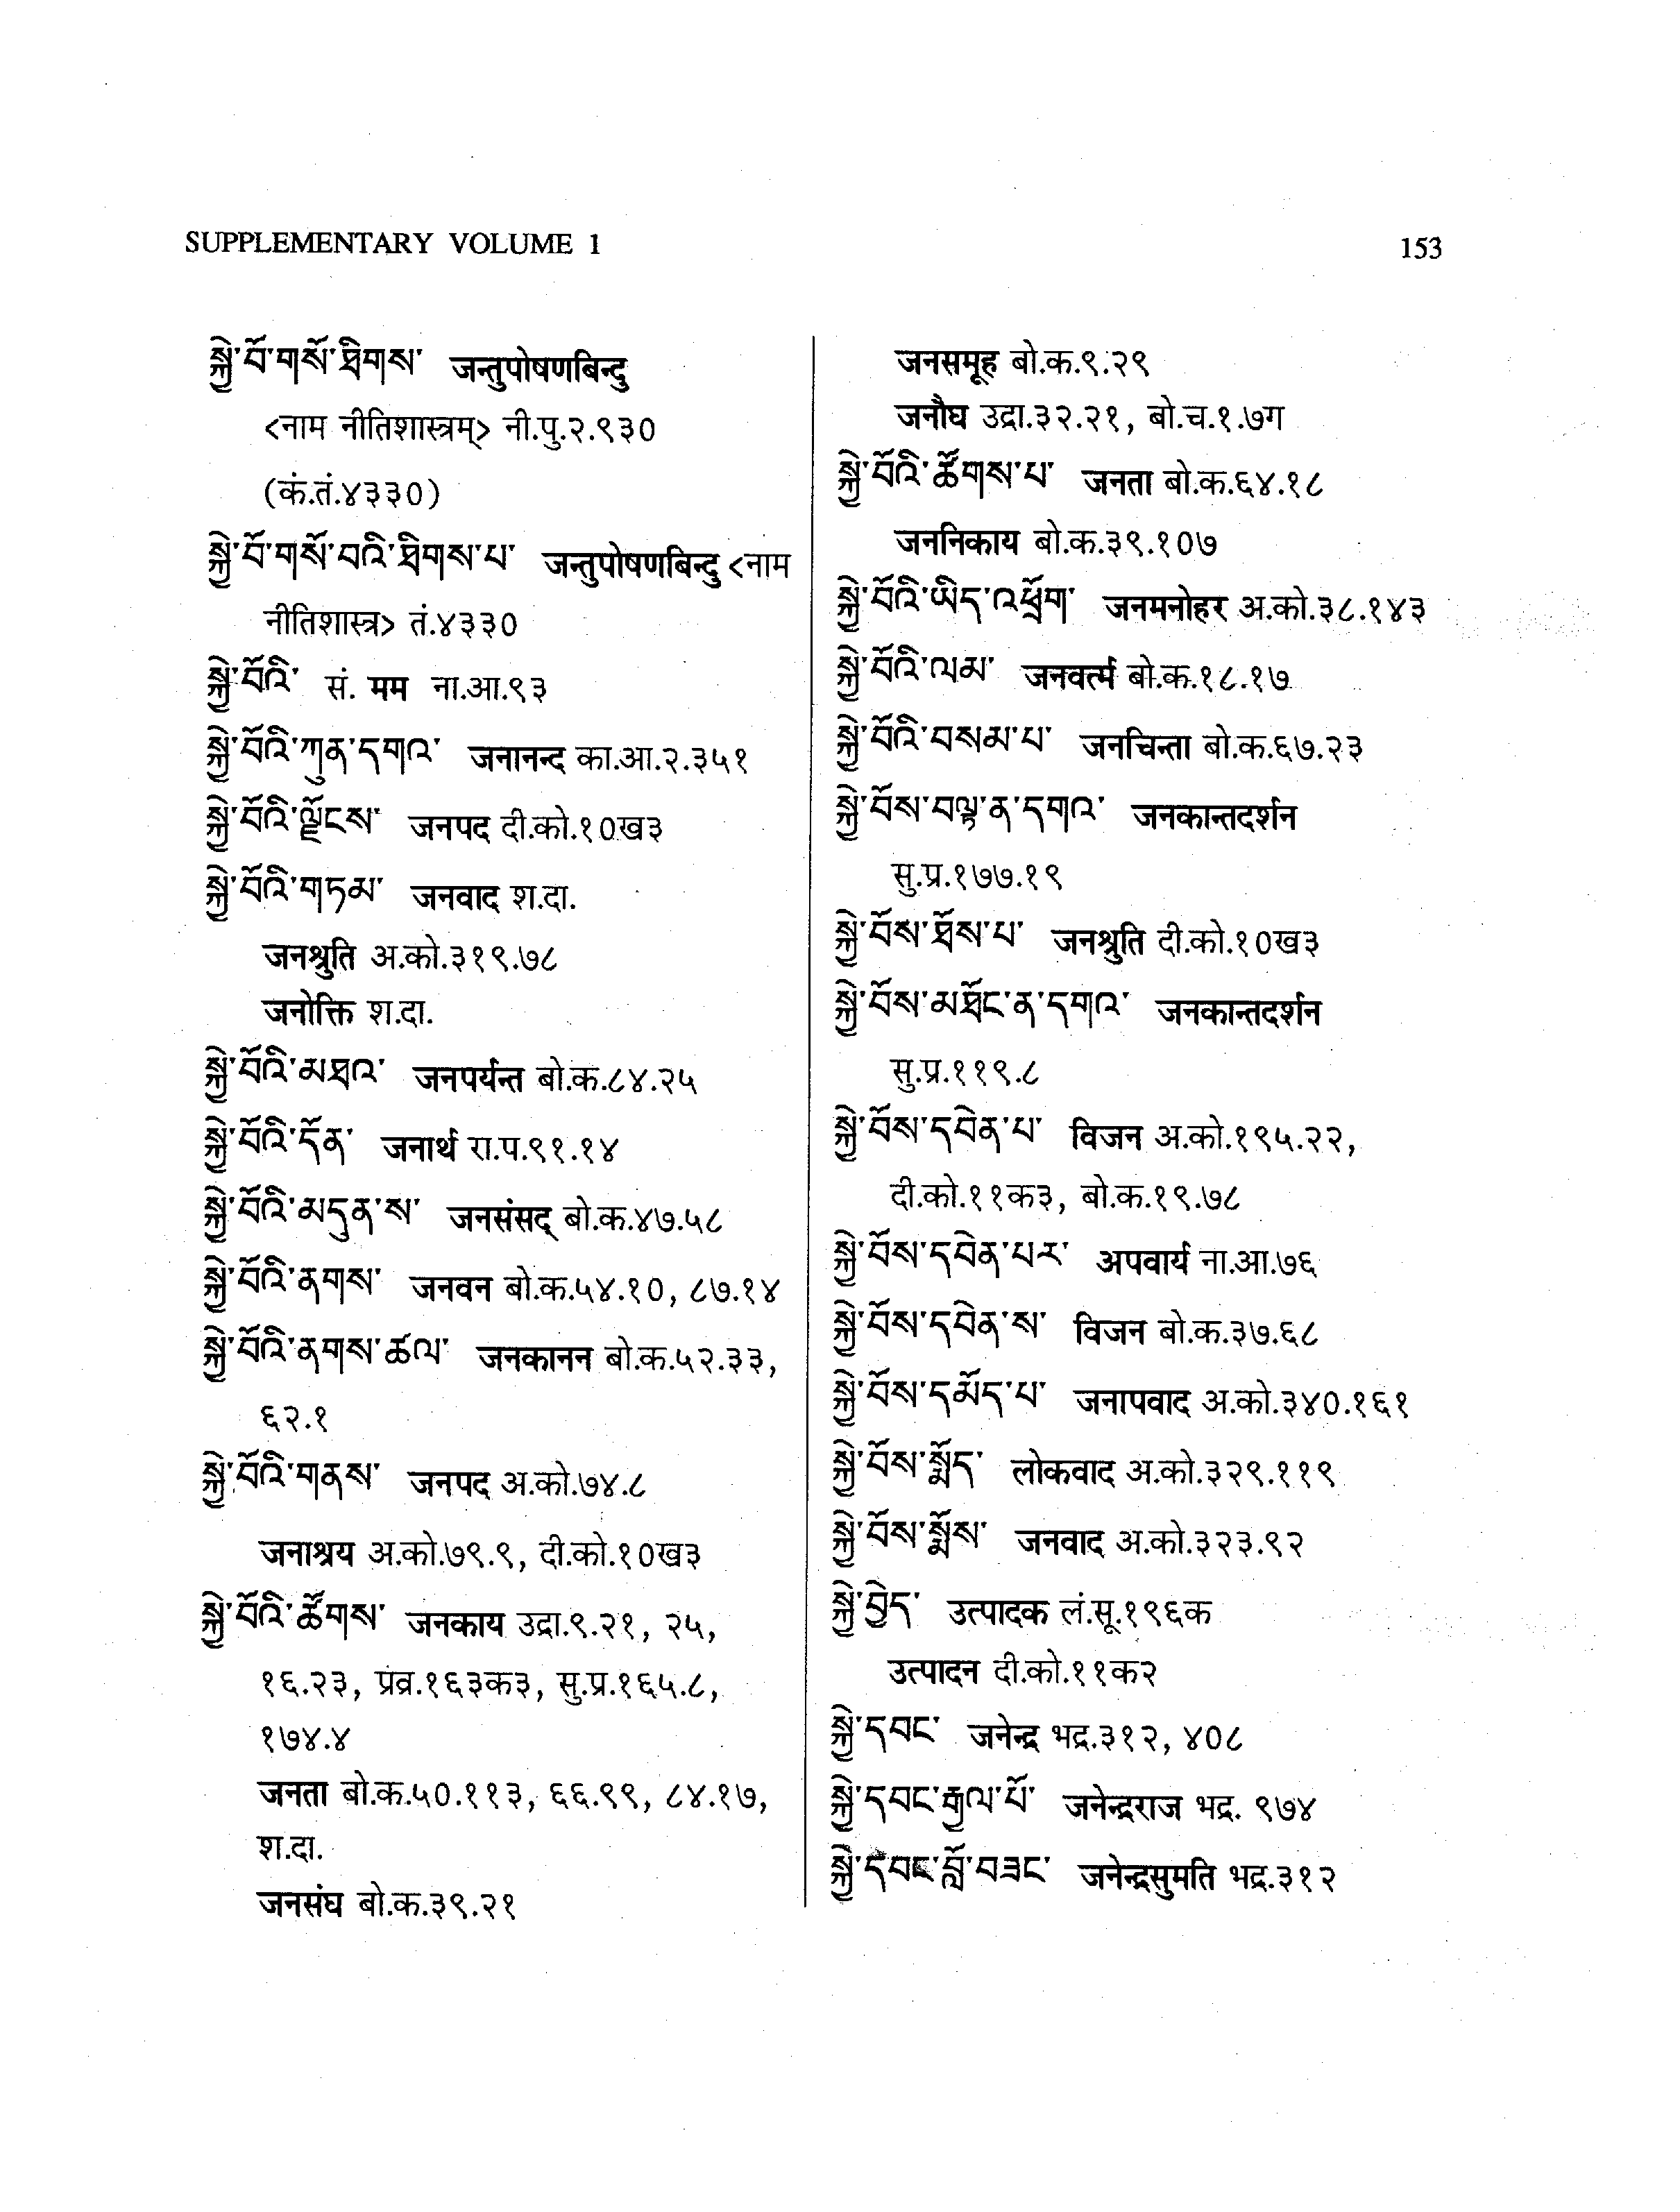 SUPPLEMENTARY VOLUME 1
153
སྐྱེ་བོ་གསོ་ཐིགས་ जन्तुपोषणबिन्दु
<नाम नीतिशास्त्रम्> नी.पु.२.९३०
(कं.तं.४३३०)
སྐྱེ་བོ་གསོ་བའི་ཐིགས་པ་ जन्तुपोषणबिन्दु <नाम
नीतिशास्त्र> तं.४३३०
སྐྱེ་བོའི་ सं. मम ना.आ.९३
སྐྱེ་བོའི་ཀུན་དགའ་ जनानन्द का.आ.२.३५१
སྐྱེ་བོའི་ལྗོངས་ जनपद दी.को.१०ख३
སྐྱེ་བོའི་གཏམ་ जनवाद श.दा.
जनश्रुति अ.को.३१९.७८
जनोक्ति श.दा.
སྐྱེ་བོའི་མཐའ་ जनपर्यन्त बो.क.८४.२५
སྐྱེ་བོའི་དོན་ जनार्थ रा.प.९१.१४
སྐྱེ་བོའི་མདུན་ས་ जनसंसद् बो.क.४७.५८
སྐྱེ་བོའི་ནགས་ जनवन बो.क.५४.१०, ८७.१४
སྐྱེ་བོའི་ནགས་ཚལ་ जनकानन बो.क.५२.३३,
६२.१
སྐྱེ་བོའི་གནས་ जनपद अ.को.७४.८
जनाश्रय अ.को.७९.९, दी.को.१०ख३
སྐྱེ་བོའི་ཚོགས་ जनकाय उद्रा.९.२१, २५,
१६.२३, प्रंव्र.१६३क३, सु.प्र.१६५.८,
१७४.४
जनता बो.क.५०.११३, ६६.९९, ८४.१७,
श.दा.
जनसंघ बो.क.३९.२१
जनसमूह बो.क.९.२९
जनौघ उद्रा.३२.२१, बो.च.१.७ग
སྐྱེ་བོའི་ཚོགས་པ་ जनता बो.क.६४.१८
जननिकाय बो.क.३९.१०७
སྐྱེ་བོའི་ཡིད་འཕྲོག་ जनमनोहर अ.को.३८.१४३
སྐྱེ་བོའི་ལམ་ जनवर्त्म बो.क.१८.१७
སྐྱེ་བོའི་བསམ་པ་ जनचिन्ता बो.क.६७.२३
སྐྱེ་བོས་བལྟ་ན་དགའ་ जनकान्तदर्शन
सु.प्र.१७७.१९
སྐྱེ་བོས་ཐོས་པ་ जनश्रुति दी.को.१०ख३
སྐྱེ་བོས་མཐོང་ན་དགའ་ जनकान्तदर्शन
सु.प्र.११९.८
སྐྱེ་བོས་དབེན་པ་ विजन अ.को.१९५.२२,
दी.को.११क३, बो.क.१९.७८
སྐྱེ་བོས་དབེན་པར་ अपवार्य ना.आ.७६
སྐྱེ་བོས་དབེན་ས་ विजन बो.क.३७.६८
སྐྱེ་བོས་དམོད་པ་ जनापवाद अ.को.३४०.१६१
སྐྱེ་བོས་སྨོད་ लोकवाद अ.को.३२९.११९
སྐྱེ་བོས་སྨོས་ जनवाद अ.को.३२३.९२
སྐྱེ་བྱེད་ उत्पादक लं.सू.१९६क
उत्पादन दी.को.११क२
སྐྱེ་དབང་ जनेन्द्र भद्र.३१२, ४०८
སྐྱེ་དབང་རྒྱལ་པོ་ जनेन्द्रराज भद्र. ९७४
སྐྱེ་དབང་བློ་བཟང་ जनेन्द्रसुमति भद्र.३१२